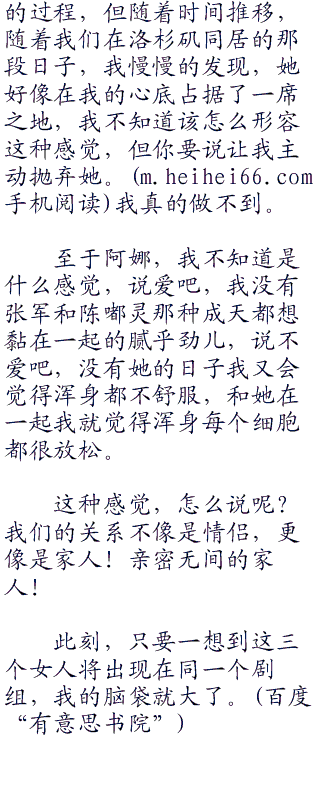 的过程，但随着时间推移，
随着我们在洛杉矶同居的那
段日子，我慢慢的发现，她
好像在我的心底占据了一席
之地，我不知道该怎么形容
这种感觉，但你要说让我主
动抛弃她。(m.heihei66.com
手机阅读)我真的做不到。
至于阿娜，我不知道是
什么感觉，说爱吧，我没有
张军和陈嘟灵那种成天都想
黏在一起的腻乎劲儿，说不
爱吧，没有她的日子我又会
觉得浑身都不舒服，和她在
一起我就觉得浑身每个细胞
都很放松。
这种感觉，怎么说呢？
我们的关系不像是情侣，更
像是家人！亲密无间的家
人！
此刻，只要一想到这三
个女人将出现在同一个剧
组，我的脑袋就大了。(百度
“有意思书院”)